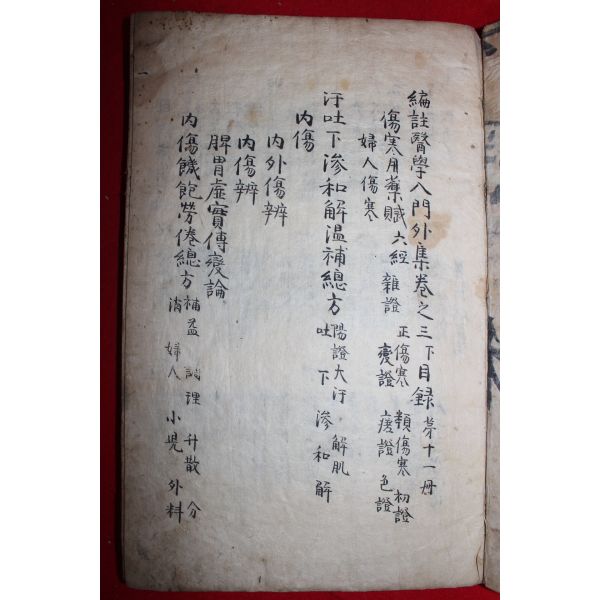 編註醫學入門外集卷之三下目録 第十一冊
傷寒用藥賦 六經 正傷寒 類傷寒 初證
雜證 變證 痓證 色證
婦人傷寒
汗吐下滲和解溫補總方 陽證大汗 解肌
吐 下 滲 和解
內傷
內外傷辨
內傷辨
脾胃虛實傳變論
內傷饑飽勞倦總方 補益 調理 升散 分
消 婦人 小児 外科